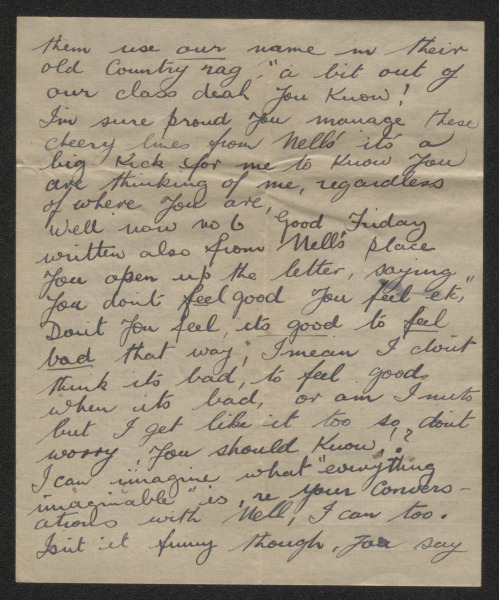 them use our name in their
old Country rag. "a bit out of
our class deah You Know!
I'm sure proud You manage these
cheery lines from Nell's it's a
big Kick for me to Know You
are thinking of me, regardless
of where You are,
Well now no 6 Good Friday
written also from Nell's place
You open up the letter, saying
You don't feel good You feel etc,"
Don't You feel, its good to feel
bad that way, I mean I don't
think its bad, to feel good
when its bad, or am I nuts
but I get like it too so, don't
worry, You should Know,!?
I can imagine what "everything
imaginable" is, re your convers-
ations with Nell, I can too.
Isn't it funny though, You say